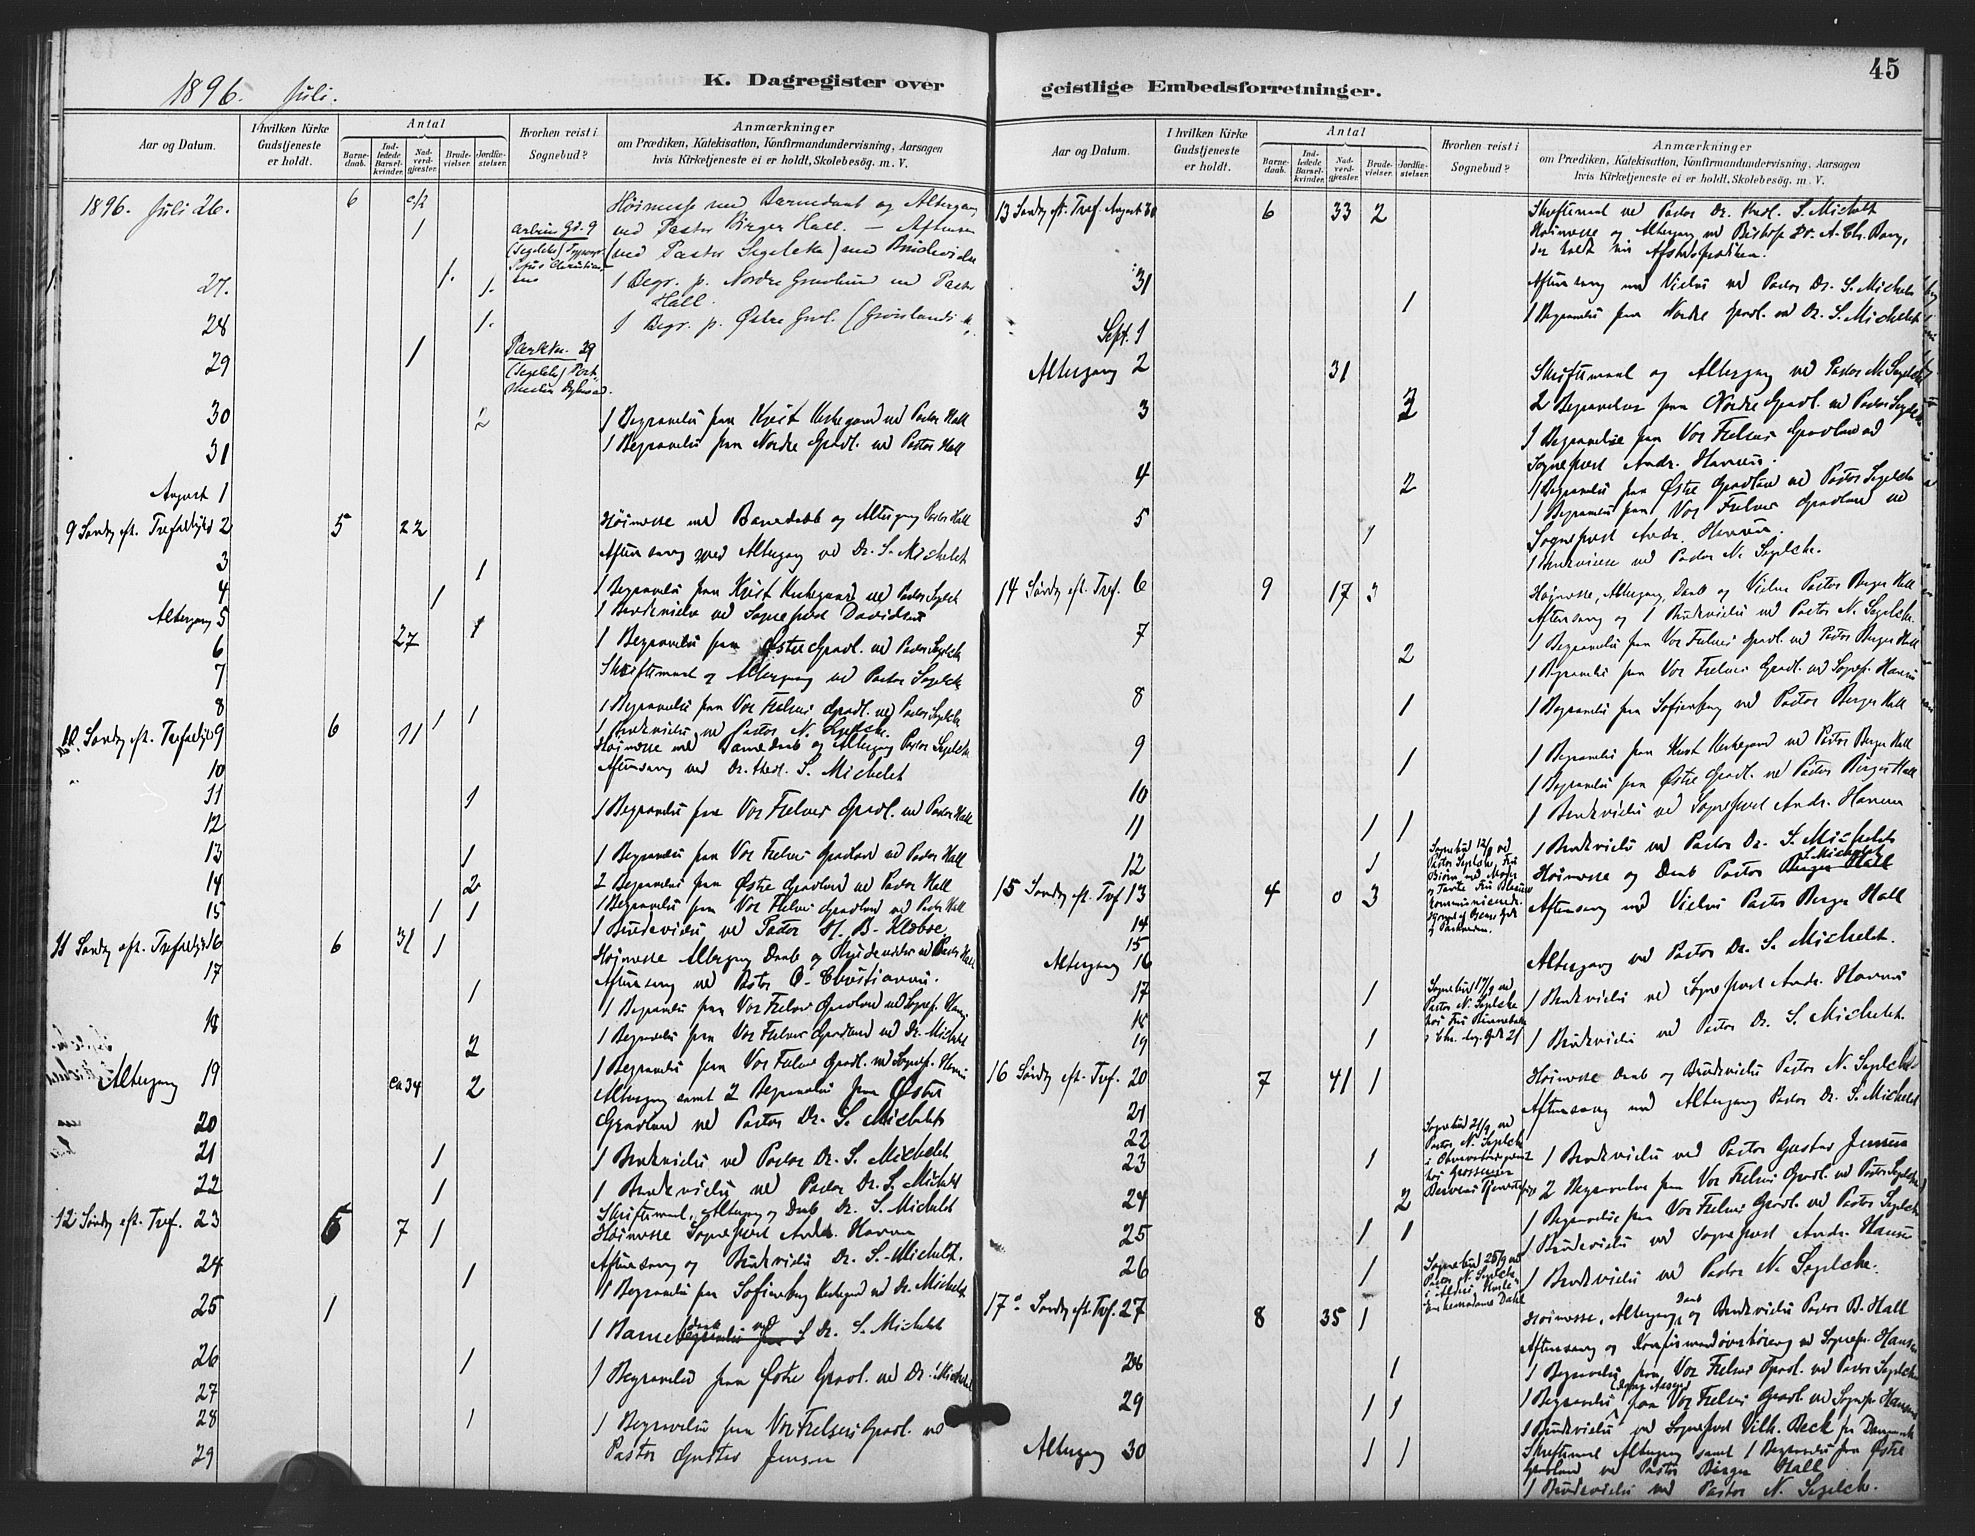 45
1896. Juli.
K. Dagregister over
Aar og Datum.
I hvilken Kirke Gudstjeneste er holdt.
Antal
Barnedaab.
Indledede Barselkvinder.
Nadverdgjæster.
Brudevielser.
Jordfæstelser.
Hvorhen reist i Sognebud?
Anmærkninger
om Prædiken, Katekisation, Konfirmandundervisning, Aarsagen
hvis Kirketjeneste ei er holdt, Skolebesøg. m. V.
1896. Juli 26. 6 Høimesse med Barnedaab og Altergang
1 ved Pastor Birger Hall. — Aftens
(ved Pastor Segelcke) med Brudevielse
27. 1. 1. 1 Begr. p. Nordre Gravlund ved Pastor
Hall.
28 1. 1 Begr. p. Østre Gravl.
29 1 Parkv. 29
30 2 1 Begravelse fra Krist Kirkegaard ved Pastor Hall
31 1 Begravelse fra Nordre Gravl. ved Pastor Hall
August 1
9 Søndag eft. Trefoldighed 2 5 22 Høimesse med Barnedaab og Altergang Pastor Hall
Aftensang med Altergang ved Dr. S. Michelet
3 1
4 1 1 Begravelse fra Krist Kirkegaard ved Pastor Segelck
Altergang 5 1 Brudevielse ved Sogneprest Davidsen
27 1 1 Begravelse fra Østre Gravl. ved Pastor Segelck
6 Skriftemaal og Altergang ved Pastor Segelck
7
8 1 1 1 Begravelse fra Vor Frelsers Gravl. ved Pastor Segelck
1 Brudevielse ved Pastor N. Segelck.
10. Søndag eft. Trefoldighed 9 6 71 Høimesse med Barnedaab og Altergang Pastor Segelck
10 Aftensang ved Dr. theol. S. Michelet
11 1 1 Begravelse fra Vor Frelsers Gravl. ved Pastor Hall
12
13 1 1 Begravelse fra Vor Frelsers Gravlund ved Pastor Hall
14 2 2 Begravelser fra Østre Gravlund ved Pastor Hall
15 1 1 1 Begravelse fra Vor Frelsers Gravlund ved Pastor Hall
1 Brudevielse ved Pastor H. B. Kleboe,
11 Søndag eft. Trefoldighed 16 6 31 1 Høimesse Altergang Daab og Brudevielse ved Pastor Hall
17 Aftensang ved Pastor O. Christiansen.
1 1 Begravelse fra Vor Frelsers Gravlund ved Sognepr. Hansen
18 2 1 Begravelse fra Vor Frelsers Gravlund ved Dr. Michelet
1 Begravelse fra Vor Frelsers Gravl. ved Sognepr. Hansen
Altergang 19 ca 34 2 Altergang samt 2 Begravelser fra Østre
20 Gravlund ved Pastor Dr. S. Michelet
21 1 1 Brudevielse ved Pastor Dr. S. Michelet
22 1 1 Brudevielse ved Pastor Dr. S. Michelet
Skriftemaal, Altergang og Daab Dr. S. Michelet
12 Søndag eft. Tref. 23 5 7 1 Høimesse Sogneprest Andr. Hansen
Aftensang og Brudevielse Dr. S. Michelet.
24 1 1 Begravelse fra Sofienberg Kirkegaard ved Dr. Michelet
25 1 1 Barnedaab ved Dr. S. Michelet
26 1 1 Begravelse fra Østre Gravl. ved Dr. Michelet
27
28 1 1 Begravelse fra Vor Frelsers Gravl. ved
29 Pastor Gustav Jensen
geistlige Embedsforretninger.
Aar og Datum.
I hvilken Kirke Gudstjeneste er holdt.
Antal
Barnedaab.
Indledede Barselkvinder.
Nadverdgjæster.
Brudevielser.
Jordfæstelser.
Hvorhen reist i Sognebud?
Anmærkninger
om Prædiken, Katekisation, Konfirmandundervisning, Aarsagen
hvis Kirketjeneste ei er holdt, Skolebesøg. m. V.
13 Søndag eft. Tref. August 30 6 33 2 Skriftemaal ved Pastor Dr. theol. S. Michelet
Høimesse og Altergang ved Biskop Dr. A. Chr. Bang,
der holdt sin Afskedsprædiken.
31 Aftensang med Vielse ved Pastor Dr. S. Michelet
1 1 Begravelse fra Nordre Gravl. ved Dr. S. Michelet
Sept. 1
Altergang 2 31 Skriftemaal og Altergang ved Pastor N. Segelck
3 2 Begravelser fra Nordre Gravl. ved Pastor Segelck
1 Begravelse fra Vor Frelsers Gravlund ved
Sogneprest Andr. Hansen.
4 2 1 Begravelse fra Østre Gravlund ved Pastor Segelck
1 Begravelse fra Vor Frelsers Gravlund ved
5 1 Sogneprest Andr. Hansen.
1 Brudevielse ved Pastor N. Segelck.
14 Søndag eft. Tref. 6 9 17 3 Høimesse, Altergang, Daab og Vielse Pastor Berger Hall
Aftensang og 1 Brudevielse ved Pastor N. Segelck.
7 2 1 Begravelse fra Vor Frelsers Gravl. ved Pastor Berger Hall
1 Begravelse fra Vor Frelsers Gravl. ved Sognepr. Hansen
8 1 1 Begravelse fra Sofienberg ved Pastor Berger Hall
9 1 1 Begravelse fra Krist Kirkegaard ved Pastor Berger Hall
1 Begravelse fra Østre Gravl. ved Pastor Birger Hall
10 1 Brudevielse ved Sogneprest Andr. Hansen
11 1 1
12 1 Sognebud 12/9 ved Pastor Segelck, 1 Brudevielse ved Pastor Dr. S. Michelet
S. Michelet
Høimesse og Daab Pastor Berger Hall
15 Søndag eft. Tref 13 4 0 3 Aftensang med Vielse Pastor Berger Hall
14
15
Altergang 16 Altergang ved Pastor Dr. S. Michelet.
17 1 Sognebud 17/9 ved Pastor N. Segelcke 1 Brudevielse ved Sogneprest Andr. Hansen
18
19 1 1 Brudevielse ved Pastor Dr. S. Michelet.
16 Søndag eft. Tref. 20 7 41 1 Høimesse Daab og Brudevielse Pastor N. Segelcke
21 Aftensang med Altergang Pastor Dr. S. Michelet
22 Sognebud 21/9 ved Pastor N. Segelck
23 1 1 Brudevielse ved Pastor Gustav Jensen
24 2 2 Begravelser fra Vor Frelsers Gravl. ved Pastor Segelcke
1 Begravelse fra Vor Frelsers Gravl. ved Pastor Segelck
25 1 1 1 Brudevielse ved Sogneprest Andr. Hansen
26 1 Sognebud 25/9 ved Pastor N. Segelck 1 Brudevielse ved Pastor N. Segelcke.
Enkemadame Dahl
17 Søndag eft Tref. 27 8 35 1 Høimesse, Altergang, Daab og Brudevielse Pastor B. Hall
Aftensang og Konfirmandoverhøring ved Sognepr. Hansen
28 1 1 Begravelse fra Vor Frelsers Gravl. ved Pastor Segelcke
29 1 1 1 Begravelse fra Vor Frelsers Gravl. ved Sognepr Hansen
1 Brudevielse ved Sogneprest Vilh. Beck fra Danmark
Altergang 30 1 1 Skriftemaal Altergang samt 1 Begravelse fra Østre
Gravlund ved Pastor Birger Hall
1 Brudevielse ved Pastor N. Segelck.